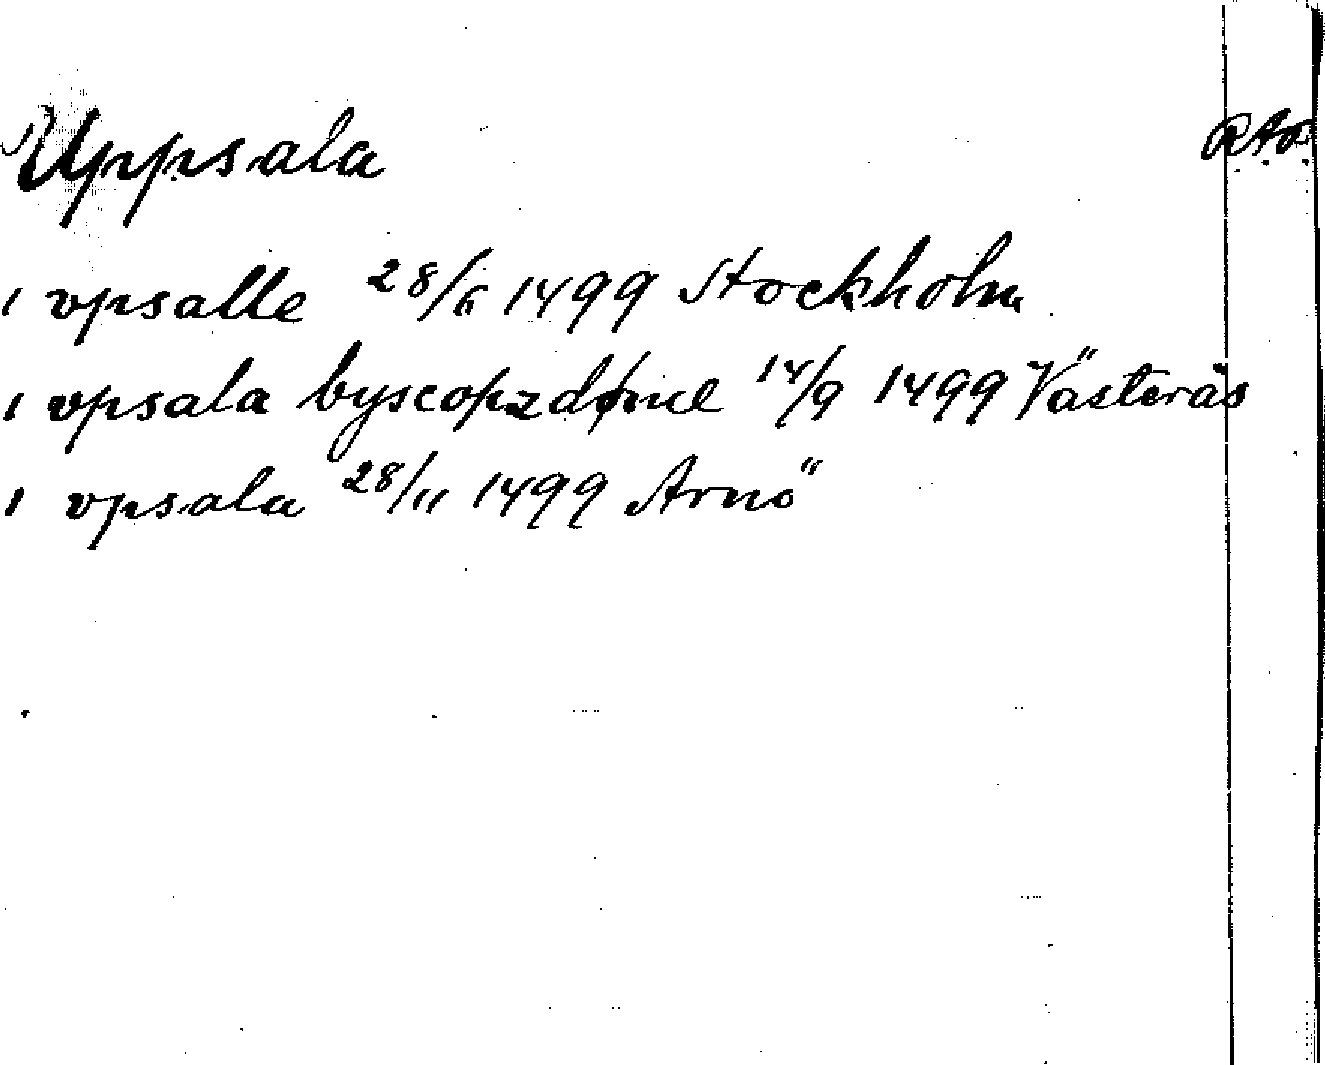 Uppsala R.A.o.
i vpsalle 28/6 1499 Stockholm
i vpsala byscopzdøme 14/9 1499 Västerås
i vpsala 28/11 1499 Arnö